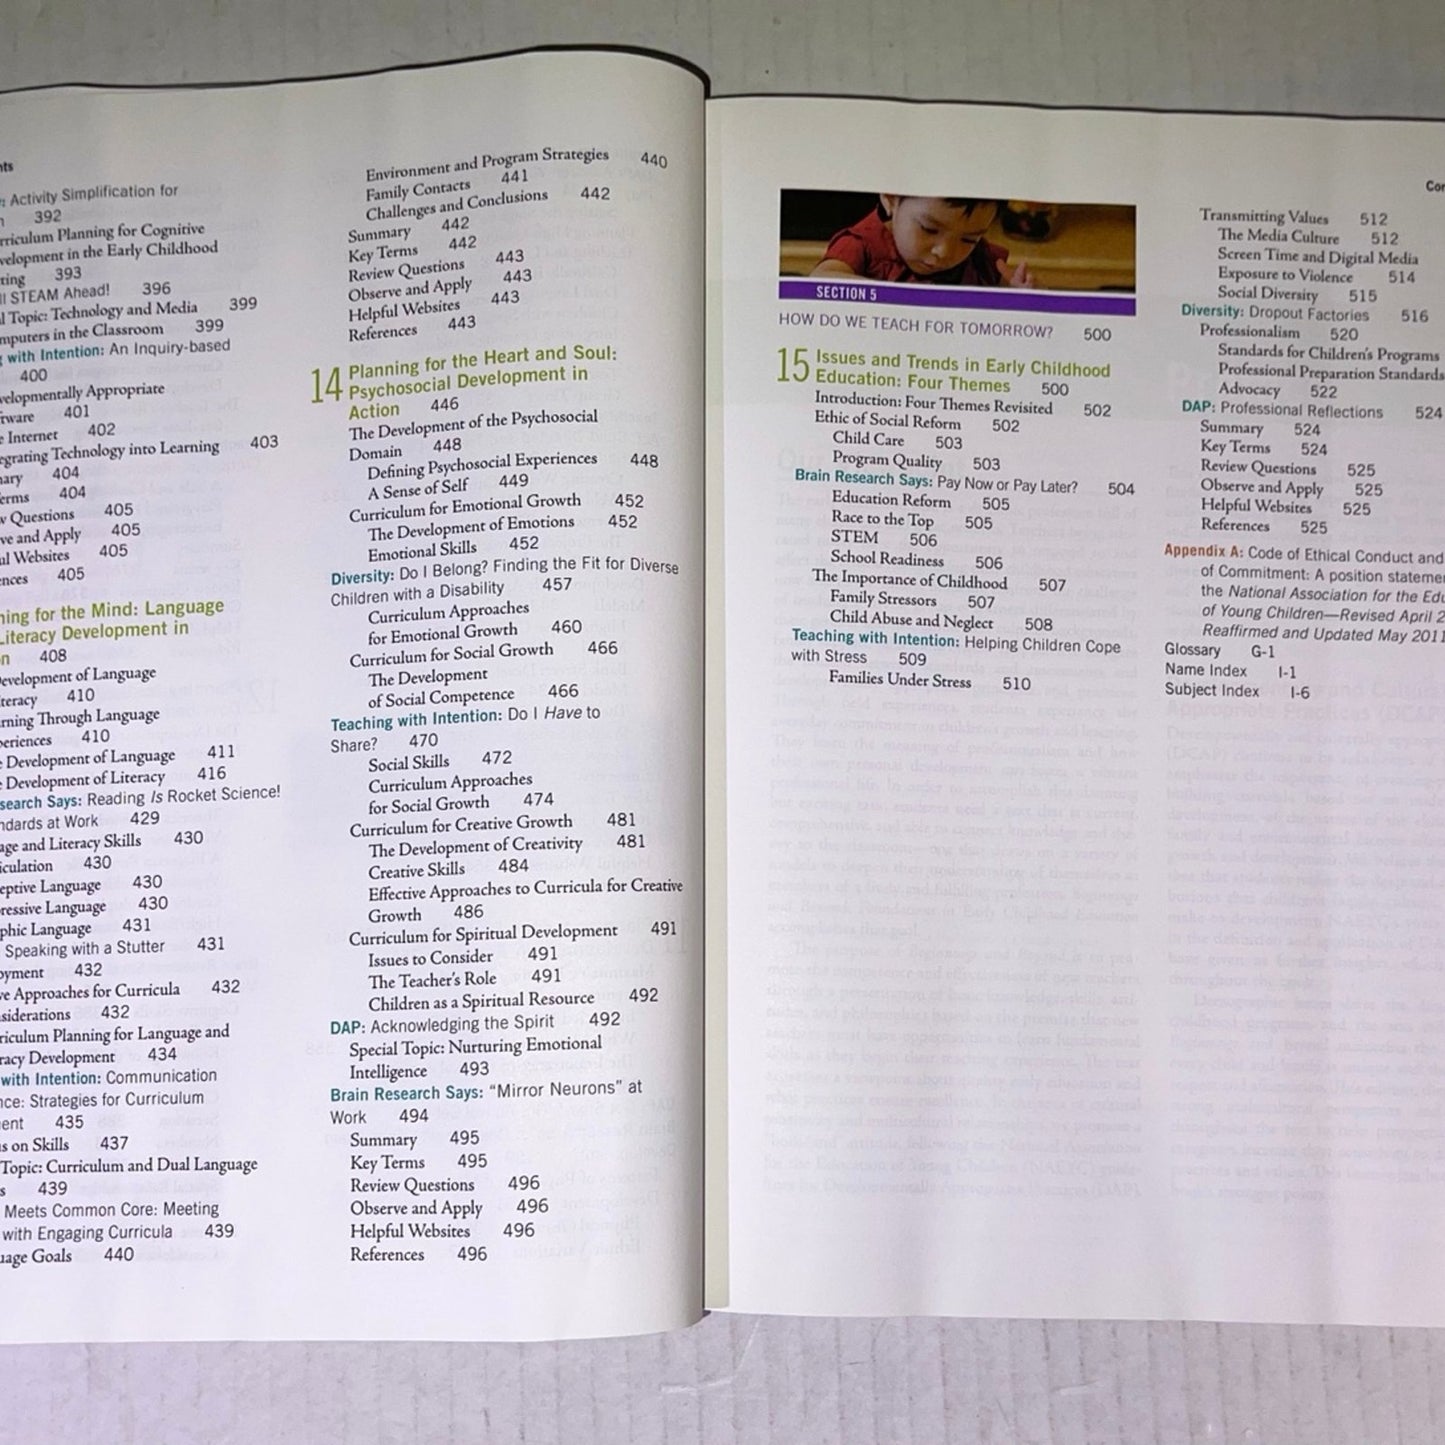 Activity Simplification for
392
Curriculum Planning for Cognitive
Development in the Early Childhood
393
STEAM Ahead! 396
Topic: Technology and Media 399
Computers in the Classroom 399
with Intention: An Inquiry-based
400
Developmentally Appropriate
401
Internet 402
Integrating Technology into Learning 403
404
404
Questions 405
and Apply 405
Websites 405
405
for the Mind: Language
Literacy Development in
408
Development of Language
410
Through Language
410
Development of Language 411
Development of Literacy 416
Says: Reading Is Rocket Science!
at Work 429
and Literacy Skills 430
430
Language 430
Language 430
Language 431
Speaking with a Stutter 431
432
Approaches for Curricula 432
432
Planning for Language and
Development 434
with Intention: Communication
Strategies for Curriculum
435
on Skills 437
Topic: Curriculum and Dual Language
439
Meets Common Core: Meeting
with Engaging Curricula 439
Goals 440
Environment and Program Strategies 440
Family Contacts 441
Challenges and Conclusions 442
Summary 442
Key Terms 442
Review Questions 443
Observe and Apply 443
Helpful Websites 443
References 443
14 Planning for the Heart and Soul:
Psychosocial Development in
Action 446
The Development of the Psychosocial
Domain 448
Defining Psychosocial Experiences 448
A Sense of Self 449
Curriculum for Emotional Growth 452
The Development of Emotions 452
Emotional Skills 452
Diversity: Do I Belong? Finding the Fit for Diverse
Children with a Disability 457
Curriculum Approaches
for Emotional Growth 460
Curriculum for Social Growth 466
The Development
of Social Competence 466
Teaching with Intention: Do I Have to
Share? 470
Social Skills 472
Curriculum Approaches
for Social Growth 474
Curriculum for Creative Growth 481
The Development of Creativity 481
Creative Skills 484
Effective Approaches to Curricula for Creative
Growth 486
Curriculum for Spiritual Development 491
Issues to Consider 491
The Teacher's Role 491
Children as a Spiritual Resource 492
DAP: Acknowledging the Spirit 492
Special Topic: Nurturing Emotional
Intelligence 493
Brain Research Says: "Mirror Neurons" at
Work 494
Summary 495
Key Terms 495
Review Questions 496
Observe and Apply 496
Helpful Websites 496
References 496
SECTION 5
HOW DO WE TEACH FOR TOMORROW? 500
15 Issues and Trends in Early Childhood
Education: Four Themes 500
Introduction: Four Themes Revisited 502
Ethic of Social Reform 502
Child Care 503
Program Quality 503
Brain Research Says: Pay Now or Pay Later? 504
Education Reform 505
Race to the Top 505
STEM 506
School Readiness 506
The Importance of Childhood 507
Family Stressors 507
Child Abuse and Neglect 508
Teaching with Intention: Helping Children Cope
with Stress 509
Families Under Stress 510
Transmitting Values 512
The Media Culture 512
Screen Time and Digital Media
Exposure to Violence 514
Social Diversity 515
Diversity: Dropout Factories 516
Professionalism 520
Standards for Children's Programs
Professional Preparation Standards
Advocacy 522
DAP: Professional Reflections 524
Summary 524
Key Terms 524
Review Questions 525
Observe and Apply 525
Helpful Websites 525
References 525
Appendix A: Code of Ethical Conduct and
of Commitment: A position
the National Association for the
of Young Children—Revised April
Reaffirmed and Updated May 2011
Glossary G-1
Name Index I-1
Subject Index I-6